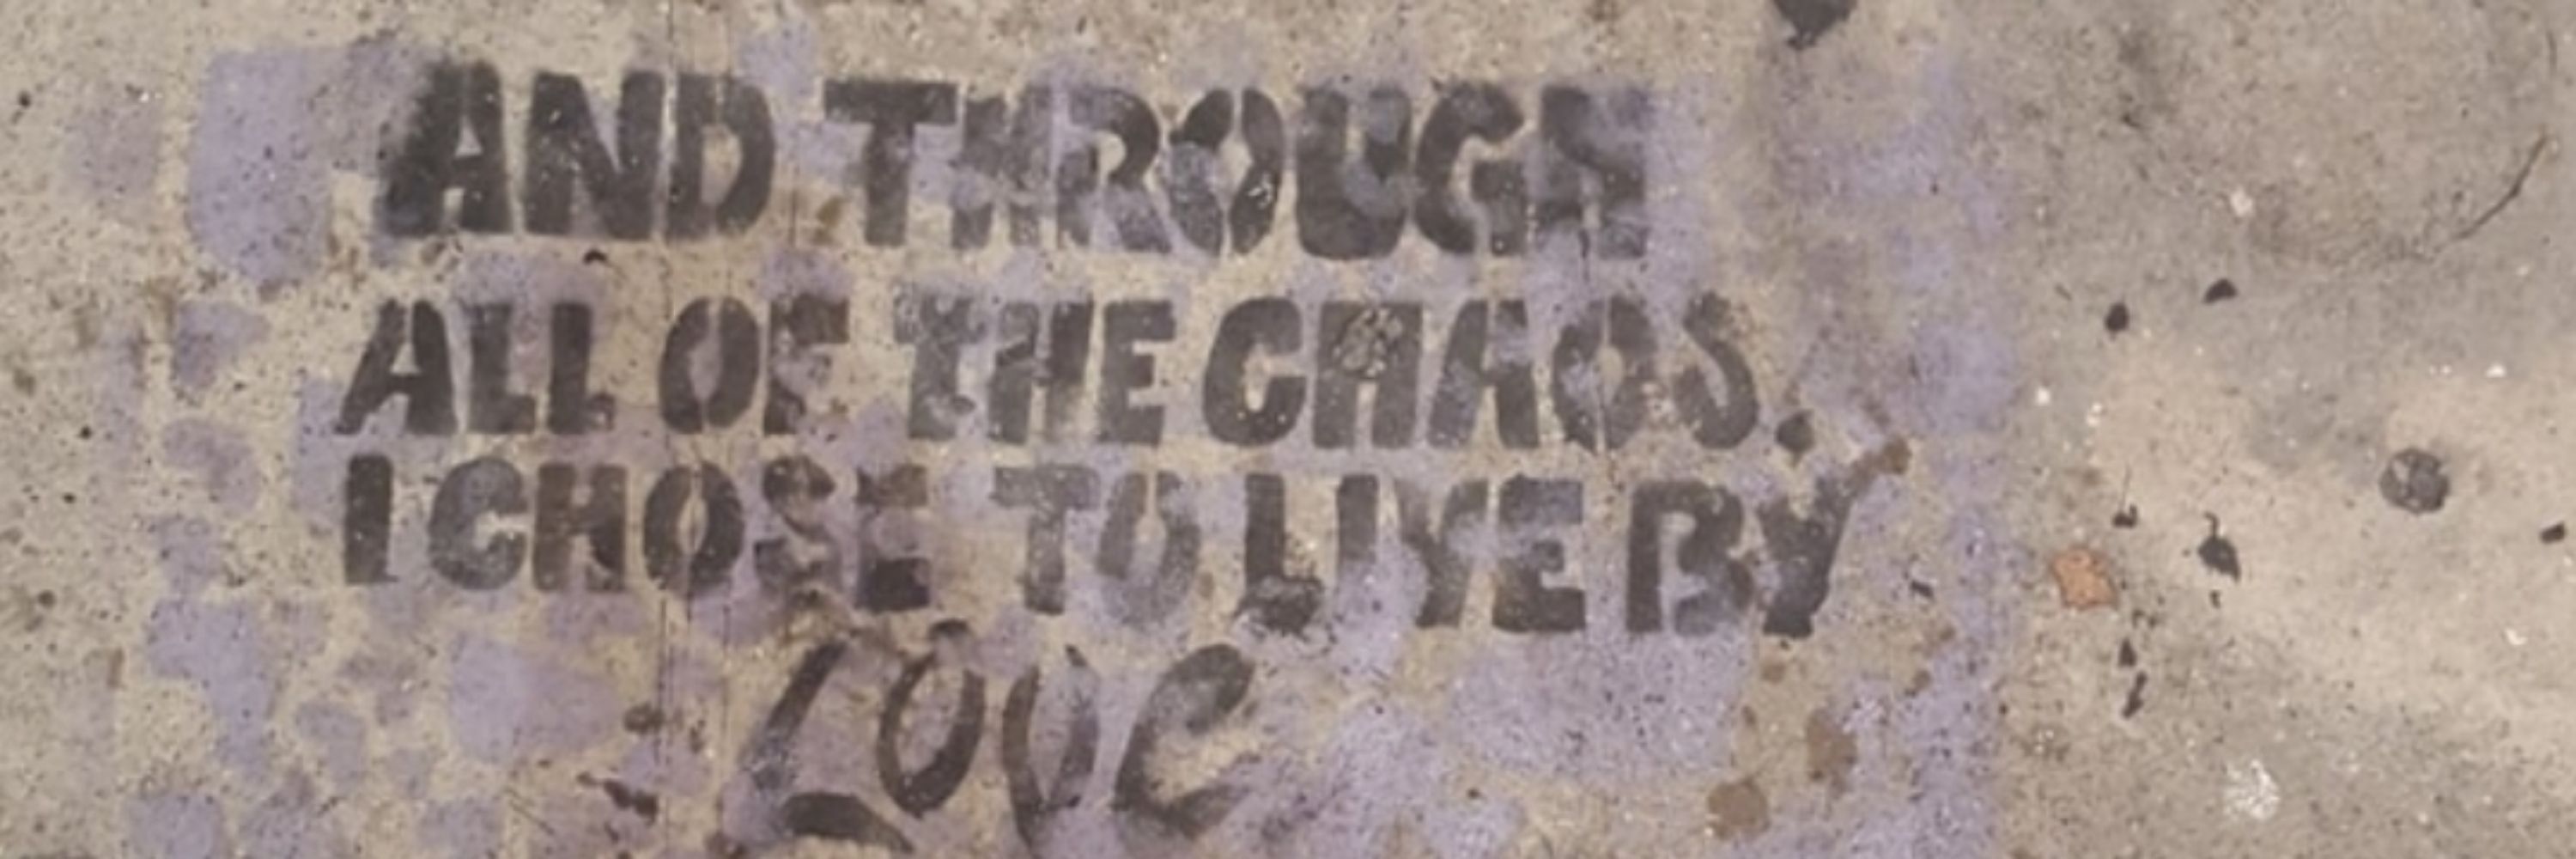 AND THROUGH
ALL OF THE CHAOS.
I CHOSE TO LIVE BY
LOVE